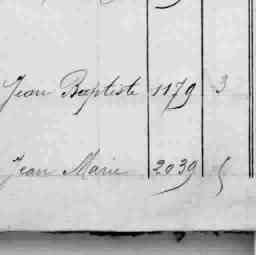 Jean Baptiste 1179 3
Jean Marie 2039